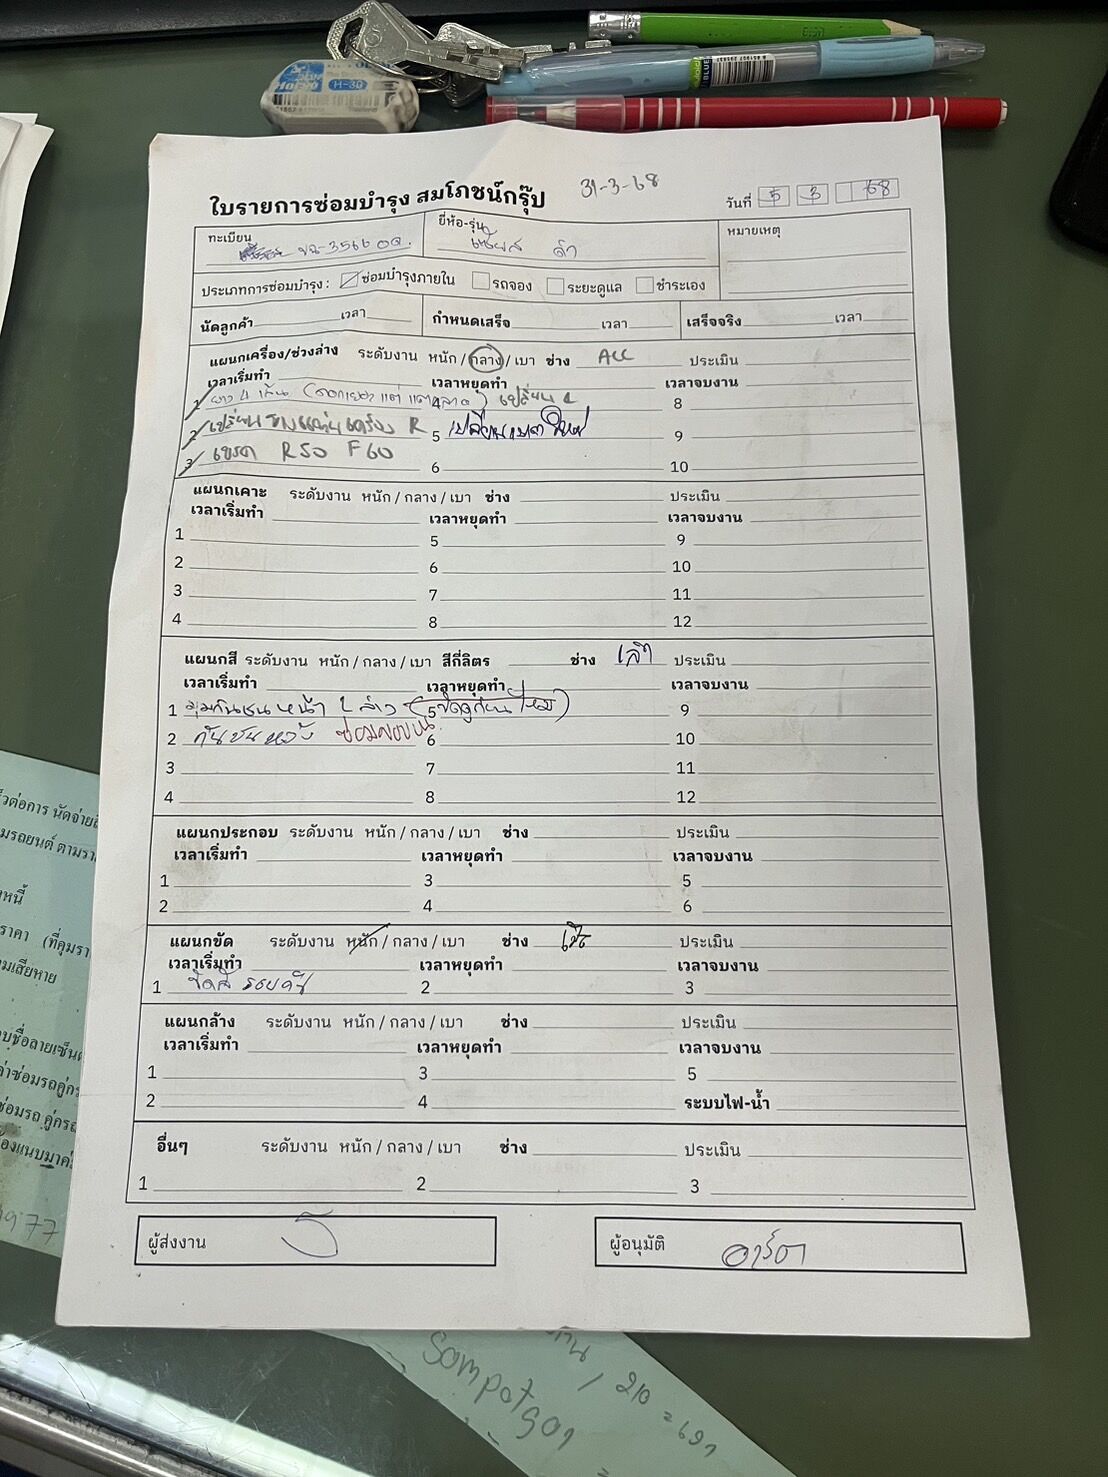 ใบรายการซ่อมบำรุง สมโภชน์กรุ๊ป 31-3-68 วันที่ 5 3 68
ทะเบียน ขฉ-3566 ยี่ห้อ-รุ่น ดำ หมายเหตุ
ประเภทการซ่อมบำรุง : ซ่อมบำรุงภายใน รถจอง ระยะดูแล ชำระเอง
นัดลูกค้า เวลา กำหนดเสร็จ เวลา เสร็จจริง เวลา
แผนกเครื่อง/ช่วงล่าง ระดับงาน หนัก / กลาง / เบา ช่าง ACC ประเมิน
เวลาเริ่มทำ เวลาหยุดทำ เวลาจบงาน
1 ยาง 4 เส้น เปลี่ยน 4 8
2 เปลี่ยน ยางแท่นเครื่อง R 5 เปลี่ยนเบาใหม่ 9
3 เบรค R50 F60 6 10
แผนกเคาะ ระดับงาน หนัก / กลาง / เบา ช่าง ประเมิน
เวลาเริ่มทำ เวลาหยุดทำ เวลาจบงาน
1 5 9
2 6 10
3 7 11
4 8 12
แผนกสี ระดับงาน หนัก / กลาง / เบา สีกี่ลิตร ช่าง ประเมิน
เวลาเริ่มทำ เวลาหยุดทำ เวลาจบงาน
1 มุมกันชนหน้า L ล่าง 5 9
2 กันชนหลัง 6 10
3 7 11
4 8 12
แผนกประกอบ ระดับงาน หนัก / กลาง / เบา ช่าง ประเมิน
เวลาเริ่มทำ เวลาหยุดทำ เวลาจบงาน
1 3 5
2 4 6
แผนกขัด ระดับงาน หนัก / กลาง / เบา ช่าง ประเมิน
เวลาเริ่มทำ เวลาหยุดทำ เวลาจบงาน
1 ขัดสี รอบคัน 2 3
แผนกล้าง ระดับงาน หนัก / กลาง / เบา ช่าง ประเมิน
เวลาเริ่มทำ เวลาหยุดทำ เวลาจบงาน
1 3 5
2 4 ระบบไฟ-น้ำ
อื่นๆ ระดับงาน หนัก / กลาง / เบา ช่าง ประเมิน
1 2 3
ผู้ส่งงาน ผู้อนุมัติ
H-30
BLUE
หนี้
Sompot
/ 210